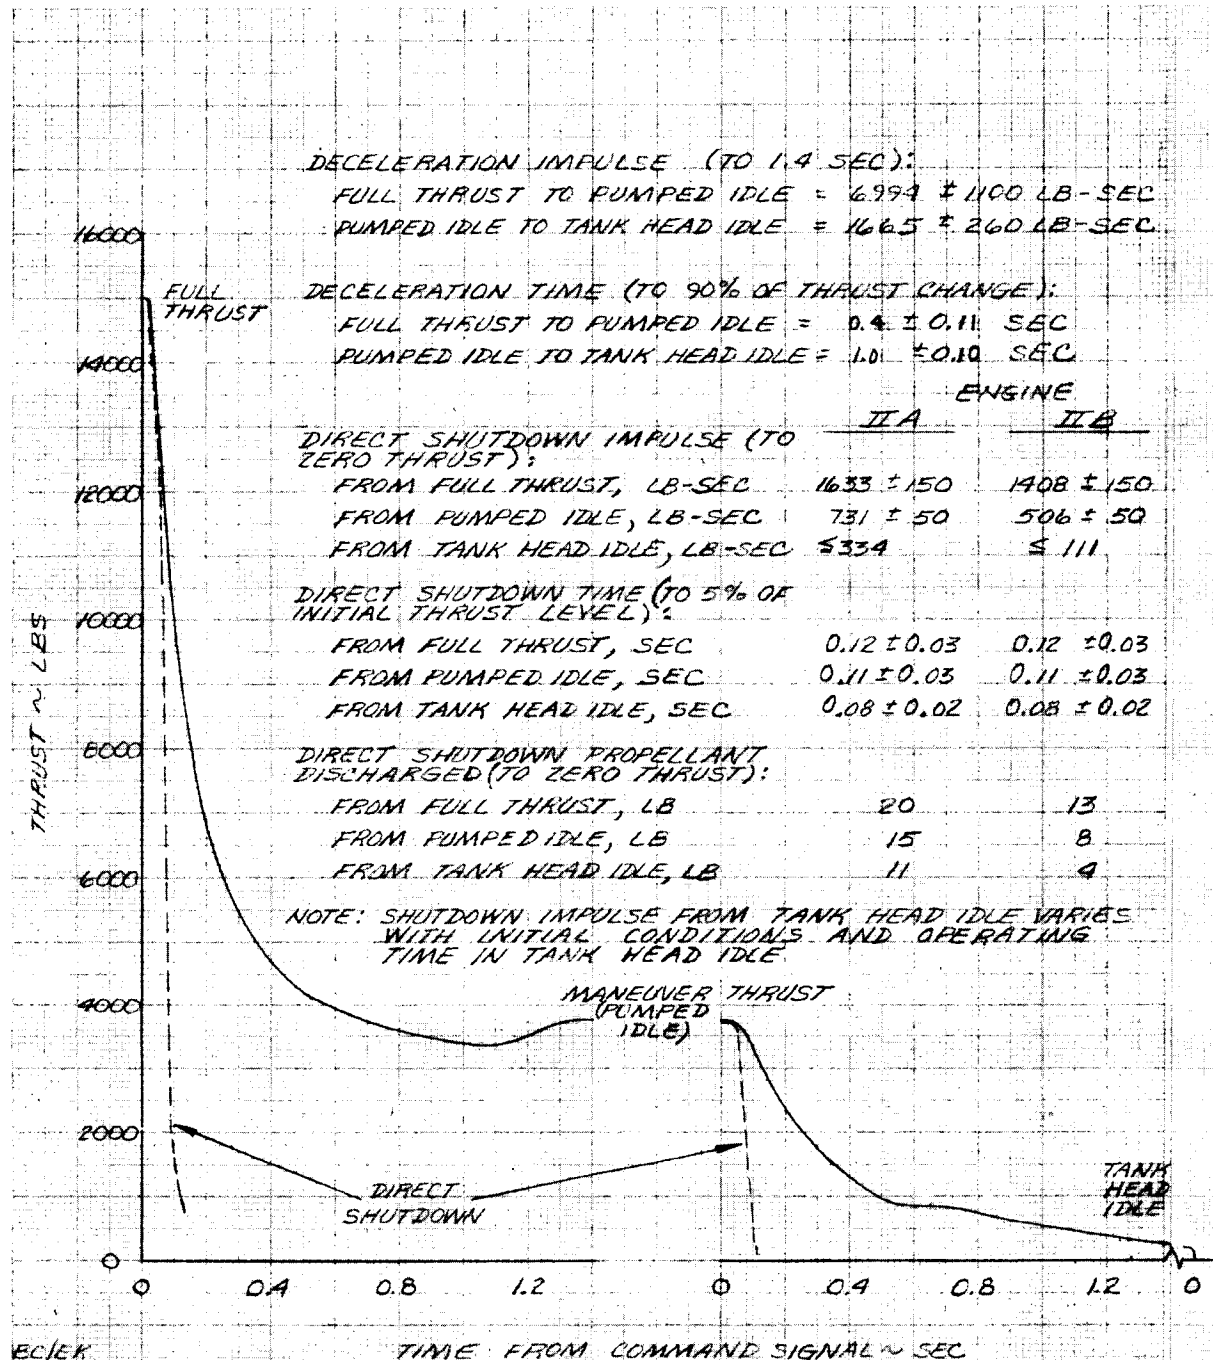 DECELERATION IMPULSE (TO 1.4 SEC):
FULL THRUST TO PUMPED IDLE = 6994 ± 1100 LB-SEC
PUMPED IDLE TO TANK HEAD IDLE = 1665 ± 260 LB-SEC
16000
FULL
THRUST
DECELERATION TIME (TO 90% OF THRUST CHANGE):
FULL THRUST TO PUMPED IDLE = 0.4 ± 0.11 SEC
PUMPED IDLE TO TANK HEAD IDLE = 1.01 ± 0.10 SEC
14000
ENGINE
IIA IIB
DIRECT SHUTDOWN IMPULSE (TO
ZERO THRUST):
FROM FULL THRUST, LB-SEC 1633 ± 150 1408 ± 150
12000
FROM PUMPED IDLE, LB-SEC 731 ± 50 506 ± 50
FROM TANK HEAD IDLE, LB-SEC ≤334 ≤ 111
DIRECT SHUTDOWN TIME (TO 5% OF
INITIAL THRUST LEVEL):
10000
FROM FULL THRUST, SEC 0.12 ± 0.03 0.12 ± 0.03
FROM PUMPED IDLE, SEC 0.11 ± 0.03 0.11 ± 0.03
FROM TANK HEAD IDLE, SEC 0.08 ± 0.02 0.08 ± 0.02
THRUST ~ LBS
8000
DIRECT SHUTDOWN PROPELLANT
DISCHARGED (TO ZERO THRUST):
FROM FULL THRUST, LB 20 13
FROM PUMPED IDLE, LB 15 8
FROM TANK HEAD IDLE, LB 11 4
6000
NOTE: SHUTDOWN IMPULSE FROM TANK HEAD IDLE VARIES
WITH INITIAL CONDITIONS AND OPERATING
TIME IN TANK HEAD IDLE.
4000
MANEUVER THRUST
(PUMPED
IDLE)
2000
DIRECT
SHUTDOWN
TANK
HEAD
IDLE
0
0 0.4 0.8 1.2 0 0.4 0.8 1.2 0
TIME FROM COMMAND SIGNAL ~ SEC